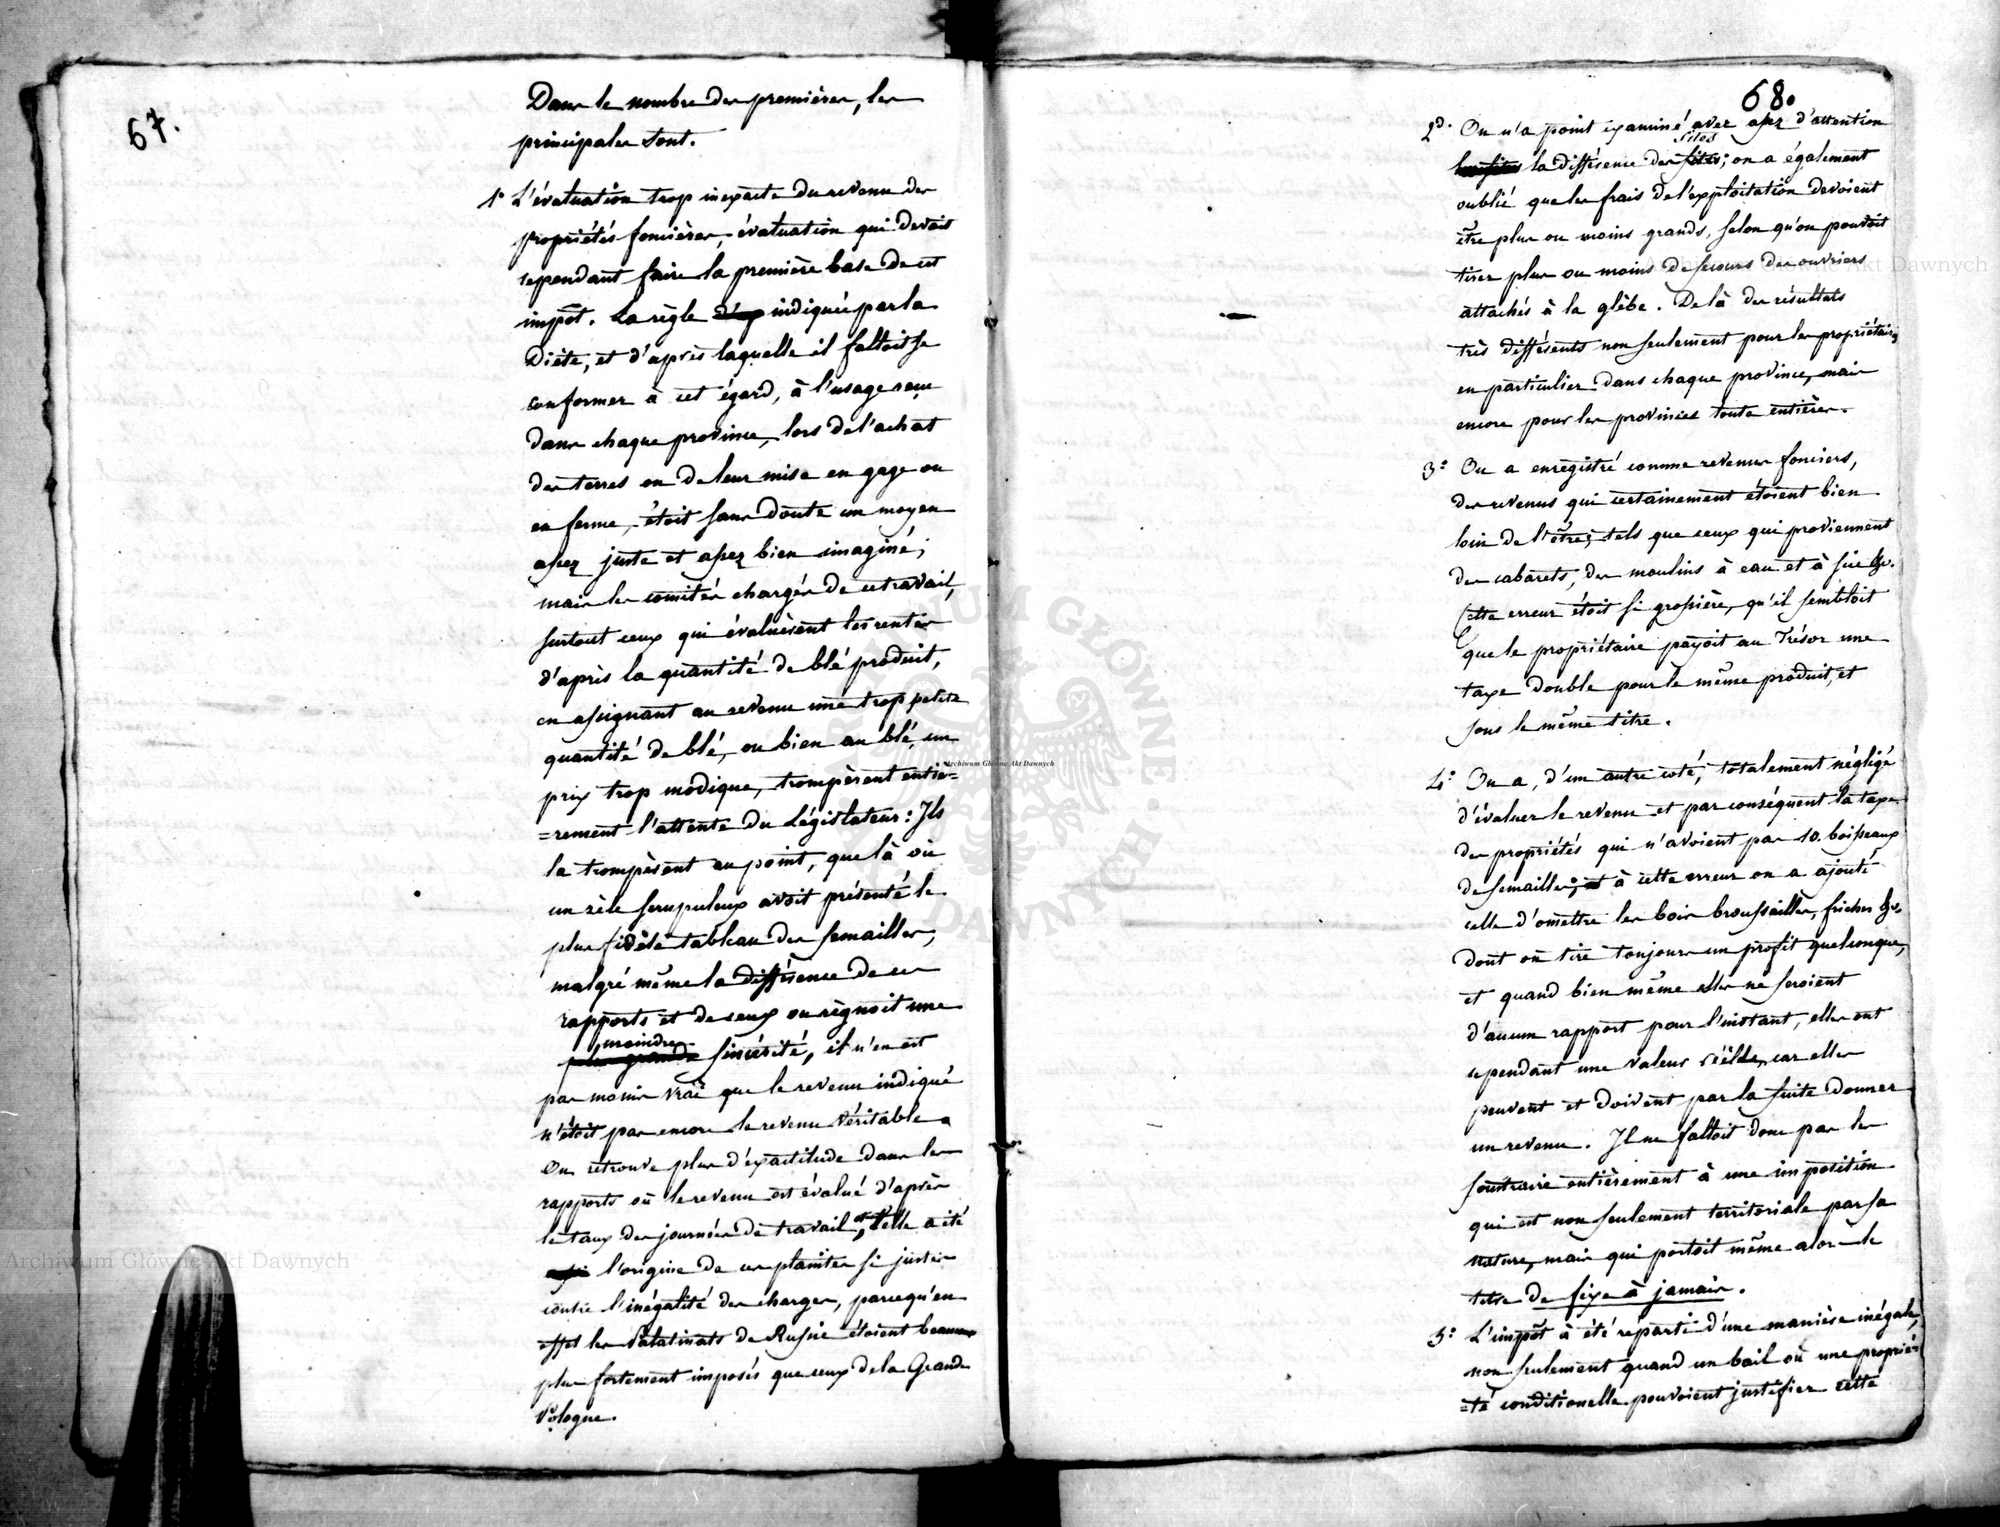 67.
Dans le nombre des premières, les
principales sont.
1° L'évaluation trop inexacte du revenu des
propriétés foncières, évaluation qui devoit
cependant faire la première base de cet
impôt. La règle indiquée par la
Diète, et d'après laquelle il falloit se
conformer à cet égard, à l'usage reçu
dans chaque province, lors de l'achat
des terres ou de leur mise en gage ou
en ferme, étoit sans doute un moyen
assez juste et assez bien imaginé;
mais les comités chargés de ce travail,
surtout ceux qui évaluèrent les rentes
d'après la quantité de blé produit,
en assignant au revenu une trop petite
quantité de blé, ou bien au blé, un
prix trop modique, trompèrent entiè=
=rement l'attente du Législateur: Ils
la trompèrent au point, que là où
un zèle scrupuleux avoit présenté le
plus fidèle tableau des semailles,
malgré même la différence de ces
rapports et de ceux où règnoit une
moindre
plus grande sincérité, il n'en est
pas moins vrai que le revenu indiqué
n'étoit pas encore le revenu véritable.
On retrouve plus d'exactitude dans les
rapports où le revenu est évalué d'après
le taux des journées de travail, et telle a été
l'origine de ces plaintes si justes
contre l'inégalité des charges, parcequ'en
effet les Palatinats de Russie étoient beaucoup
plus fortement imposés que ceux de la Grande
Pologne.
68.
2d. On n'a point examiné avec assez d'attention
sites
la différence des sites; on a également
oublié que les frais de l'exploitation devoient
être plus ou moins grands, selon qu'on pouvoit
tirer plus ou moins de secours des ouvriers
attachés à la glèbe. De là des résultats
très différents non seulement pour les propriétaires
en particulier dans chaque province, mais
encore pour les provinces toute entières.
3° On a enregistré comme revenus fonciers,
des revenus qui certainement étoient bien
loin de l'être; tels que ceux qui proviennent
des cabarets, des moulins à eau et à scie &c.
Cette erreur étoit si grossière, qu'il sembloit
que le propriétaire payoit au Trésor une
taxe double pour le même produit, et
sous le même titre.
4° On a, d'un autre coté, totalement négligé
d'évaluer le revenu et par conséquent la taxe
des propriétés qui n'avoient pas 10. boisseaux
de semailles; à cette erreur on a ajouté
celle d'omettre les bois broussailles, friches &c.
dont on tire toujours un profit quelconque,
et quand bien même elles ne seroient
d'aucun rapport pour l'instant, elles ont
cependant une valeur réelle, car elles
peuvent et doivent par la suite donner
un revenu. Il ne falloit donc pas les
soustraire entièrement à une imposition
qui est non seulement territoriale par sa
nature, mais qui portoit même alors le
titre de fixe à jamais.
5° L'impôt à été réparti d'une manière inégale,
non seulement quand un bail où une proprié=
=té conditionelle pouvoient justifier cette
Archiwum Główne Akt Dawnych
Archiwum Główne Akt Dawnych
Archiwum Główne Akt Dawnych
ARCHIWUM GŁÓWNE AKT DAWNYCH